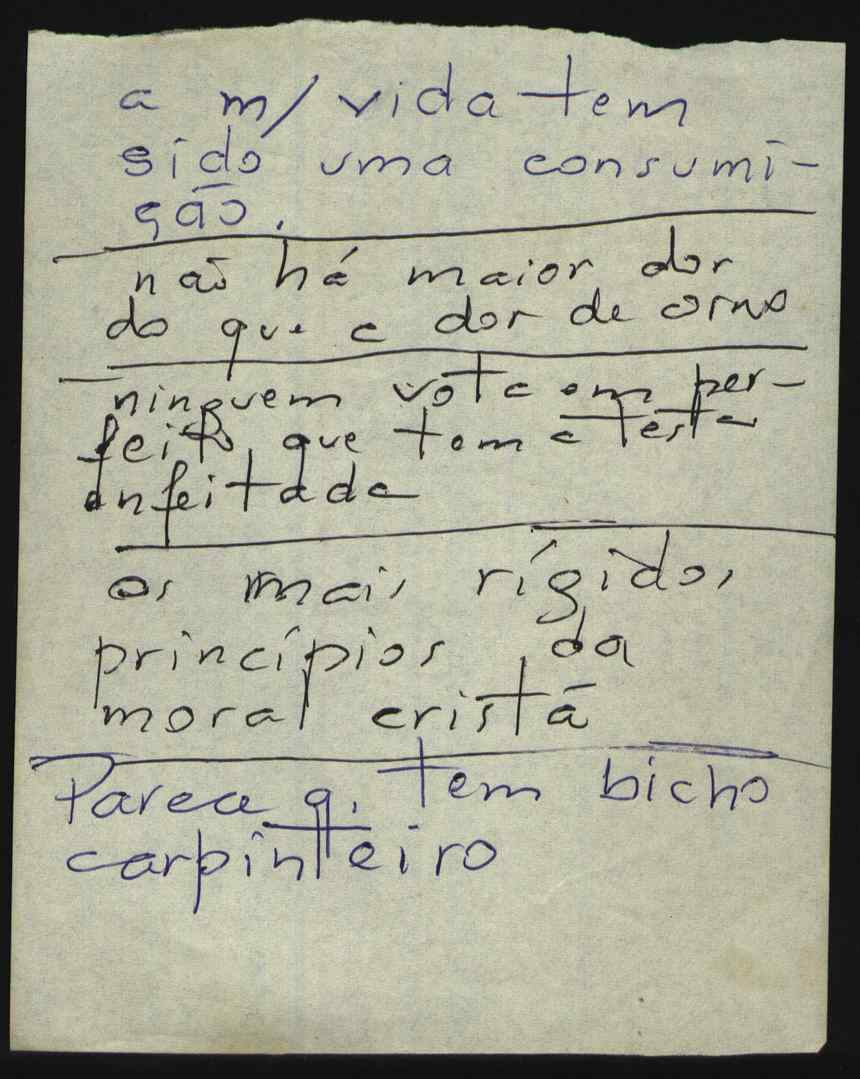 a m/ vida tem
sido uma consumi-
ção.
não há maior dor
do que a dor de corno
ninguem vota em per-
feito que tem a testa
enfeitada
os mais rígidos
princípios da
moral cristã
Parece q. tem bicho
carpinteiro